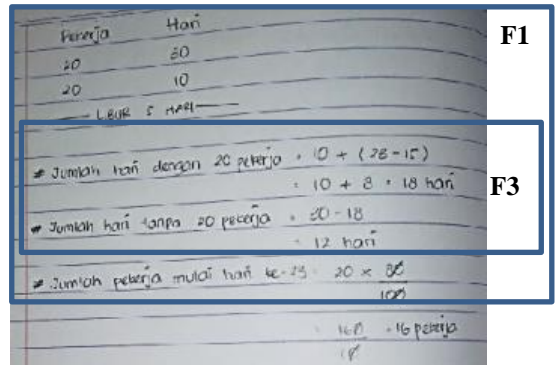 Pekerja Hari
20 30
20 10
LIBUR 5 HARI
F1
* Jumlah hari dengan 20 pekerja = 10 + (28-15)
= 10 + 8 = 18 hari
F3
* Jumlah hari tanpa 20 pekerja = 30-18
= 12 hari
* Jumlah pekerja mulai hari ke-23 = 20 × 80
100
= 160 = 16 pekerja
10